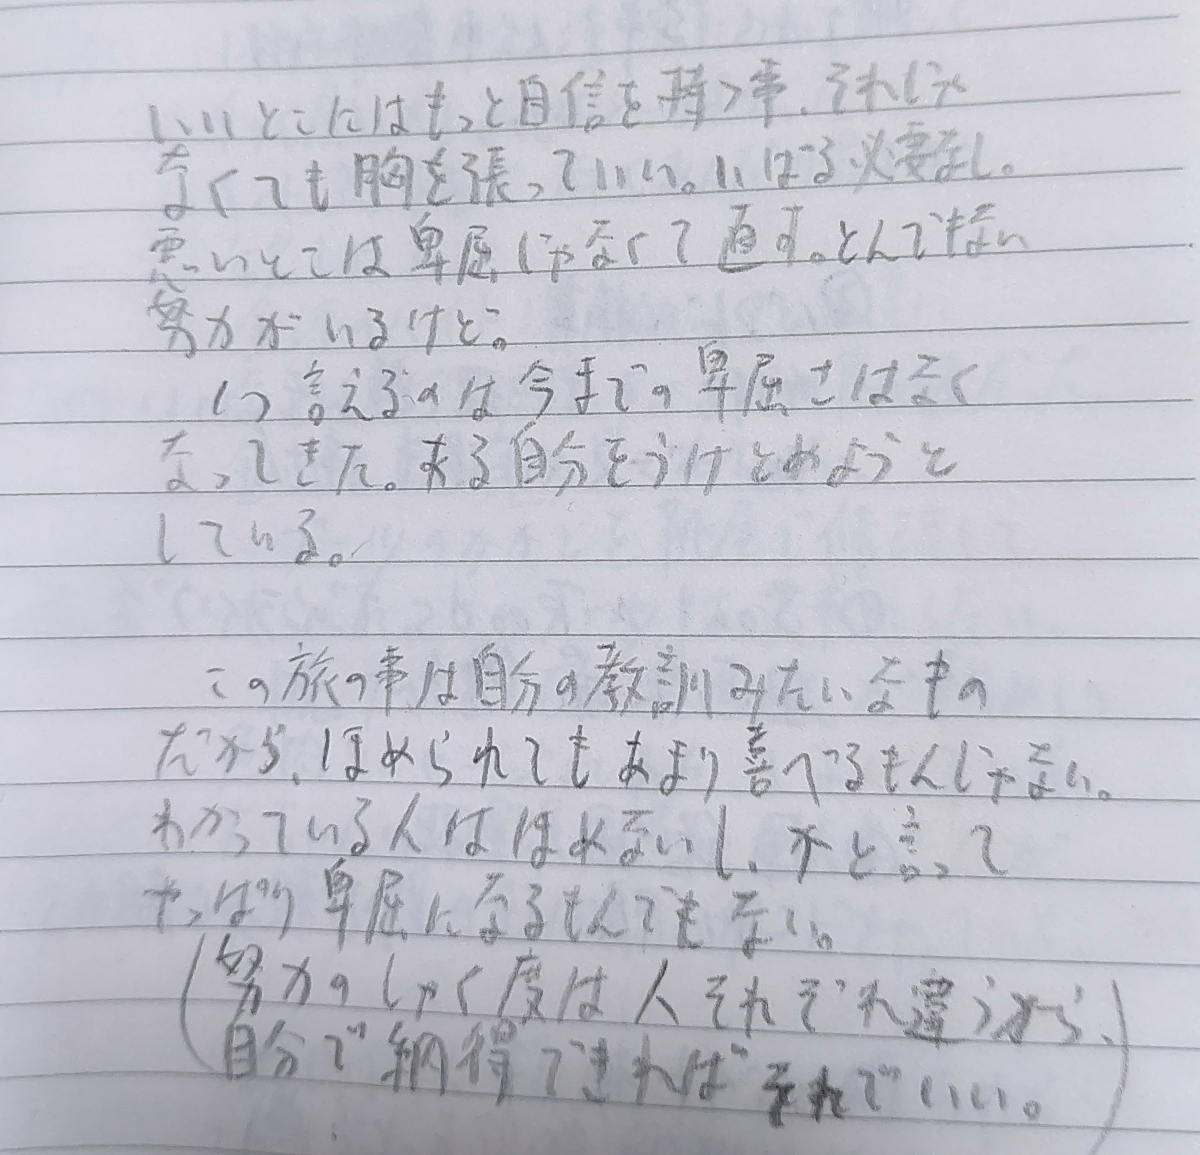 いいとこにはもっと自信を持つ事、それじゃ
なくても胸を張っていい。いばる必要なし。
悪いとこは卑屈じゃなくて直す。とんでもない
努力がいるけど。
1つ言えるのは今までの卑屈さはなく
なってきた。ある自分をうけとめようと
している。
この旅の事は自分の教訓みたいなもの
だから、ほめられてもあまり喜べるもんじゃない。
わかっている人はほめないし、かと言って
やっぱり卑屈になるもんでもない。
(努力のしゃく度は人それぞれ違うから、
自分で納得できればそれでいい。)